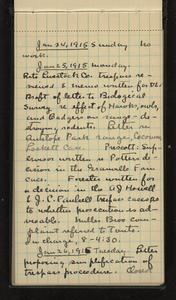 Jan 24, 1915 Sunday No
work.
Jan 25, 1915 Monday.
Rito Livestock Co. trespass re-
newed & memo written for D.L.
Draft of letter to Biological
Survey re effect of Hawks, owls,
and Badgers on range-de-
stroying rodents. Letter on
range, Coconino
Prescott: Sup-
ervisor written re Potter's de-
cision in the Gramble Fran
case. Forester written for
a decision in the A J Howell
& J.C. trespass cases as
to whether prosecution is ad-
visable. Nutter Bros Com-
plaint referred to Tonto.
In charge, 8-4:30.
Jan 26, 1915 Tuesday. Letter
proposing simplification of
trespass procedure.
(Over)